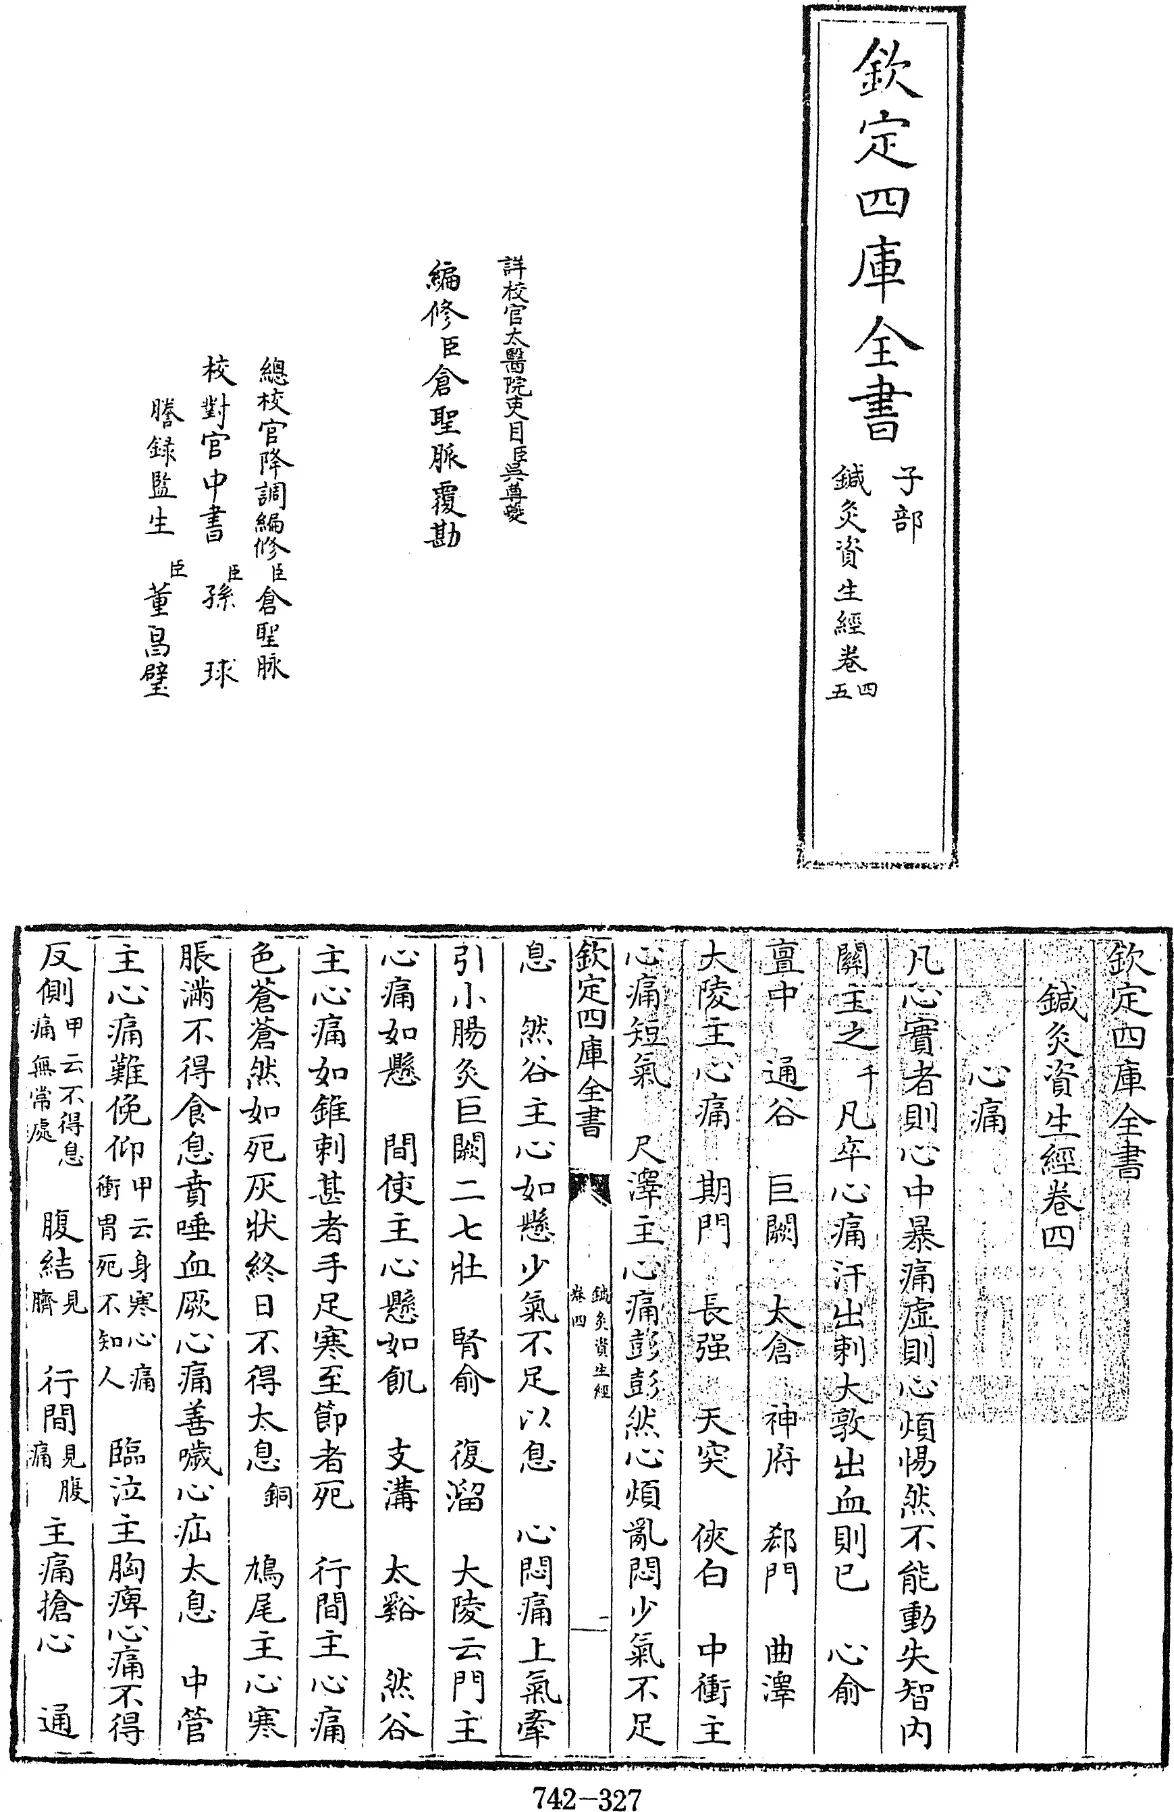 欽定四庫全書
子部
鍼灸資生經卷四五
詳校官太醫院吏目臣吳尊夔
編修臣倉聖脈覆勘
總校官降調編修臣倉聖脉
校對官中書臣孫球
謄録監生臣董昌璧
欽定四庫全書
鍼灸資生經卷四
心痛
凡心實者則心中暴痛虛則心煩惕然不能動失智内
關主之千 凡卒心痛汗出刺大敦出血則已 心俞
亶中 通谷 巨闕 太倉 神府 郄門 曲澤
大陵主心痛 期門 長强 天突 俠白 中衝主
心痛短氣 尺澤主心痛彭彭然心煩亂悶少氣不足
欽定四庫全書
鍼灸資生經
卷四
一
息 然谷主心如懸少氣不足以息 心悶痛上氣牽
引小腸灸巨闕二七壯 腎俞 復溜 大陵云門主
心痛如懸 間使主心懸如飢 支溝 太谿 然谷
主心痛如錐刺甚者手足寒至節者死 行間主心痛
色蒼蒼然如死灰狀終日不得太息銅 鳩尾主心寒
脹滿不得食息賁唾血厥心痛善噦心疝太息 中管
主心痛難俛仰甲云身寒心痛衝胃死不知人 臨泣主胸痺心痛不得
反側甲云不得息痛無常處 腹結見臍 行間見腹痛 主痛搶心 通
742-327